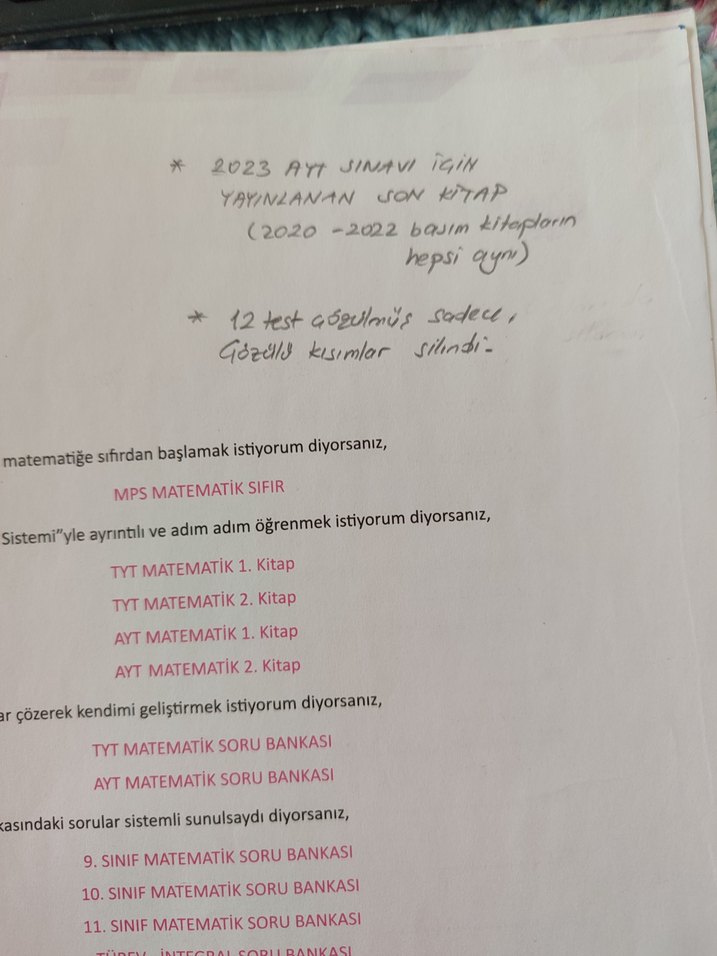 * 2023 AYT SINAVI İÇİN
YAYINLANAN SON KİTAP
(2020 - 2022 basım kitapların
hepsi aynı)
* 12 test çözülmüş sadece,
Çözülü kısımlar silindi-
matematiğe sıfırdan başlamak istiyorum diyorsanız,
MPS MATEMATİK SIFIR
Sistemi”yle ayrıntılı ve adım adım öğrenmek istiyorum diyorsanız,
TYT MATEMATİK 1. Kitap
TYT MATEMATİK 2. Kitap
AYT MATEMATİK 1. Kitap
AYT MATEMATİK 2. Kitap
ar çözerek kendimi geliştirmek istiyorum diyorsanız,
TYT MATEMATİK SORU BANKASI
AYT MATEMATİK SORU BANKASI
kasındaki sorular sistemli sunulsaydı diyorsanız,
9. SINIF MATEMATİK SORU BANKASI
10. SINIF MATEMATİK SORU BANKASI
11. SINIF MATEMATİK SORU BANKASI
TÜREV - İNTEGRAL SORU BANKASI